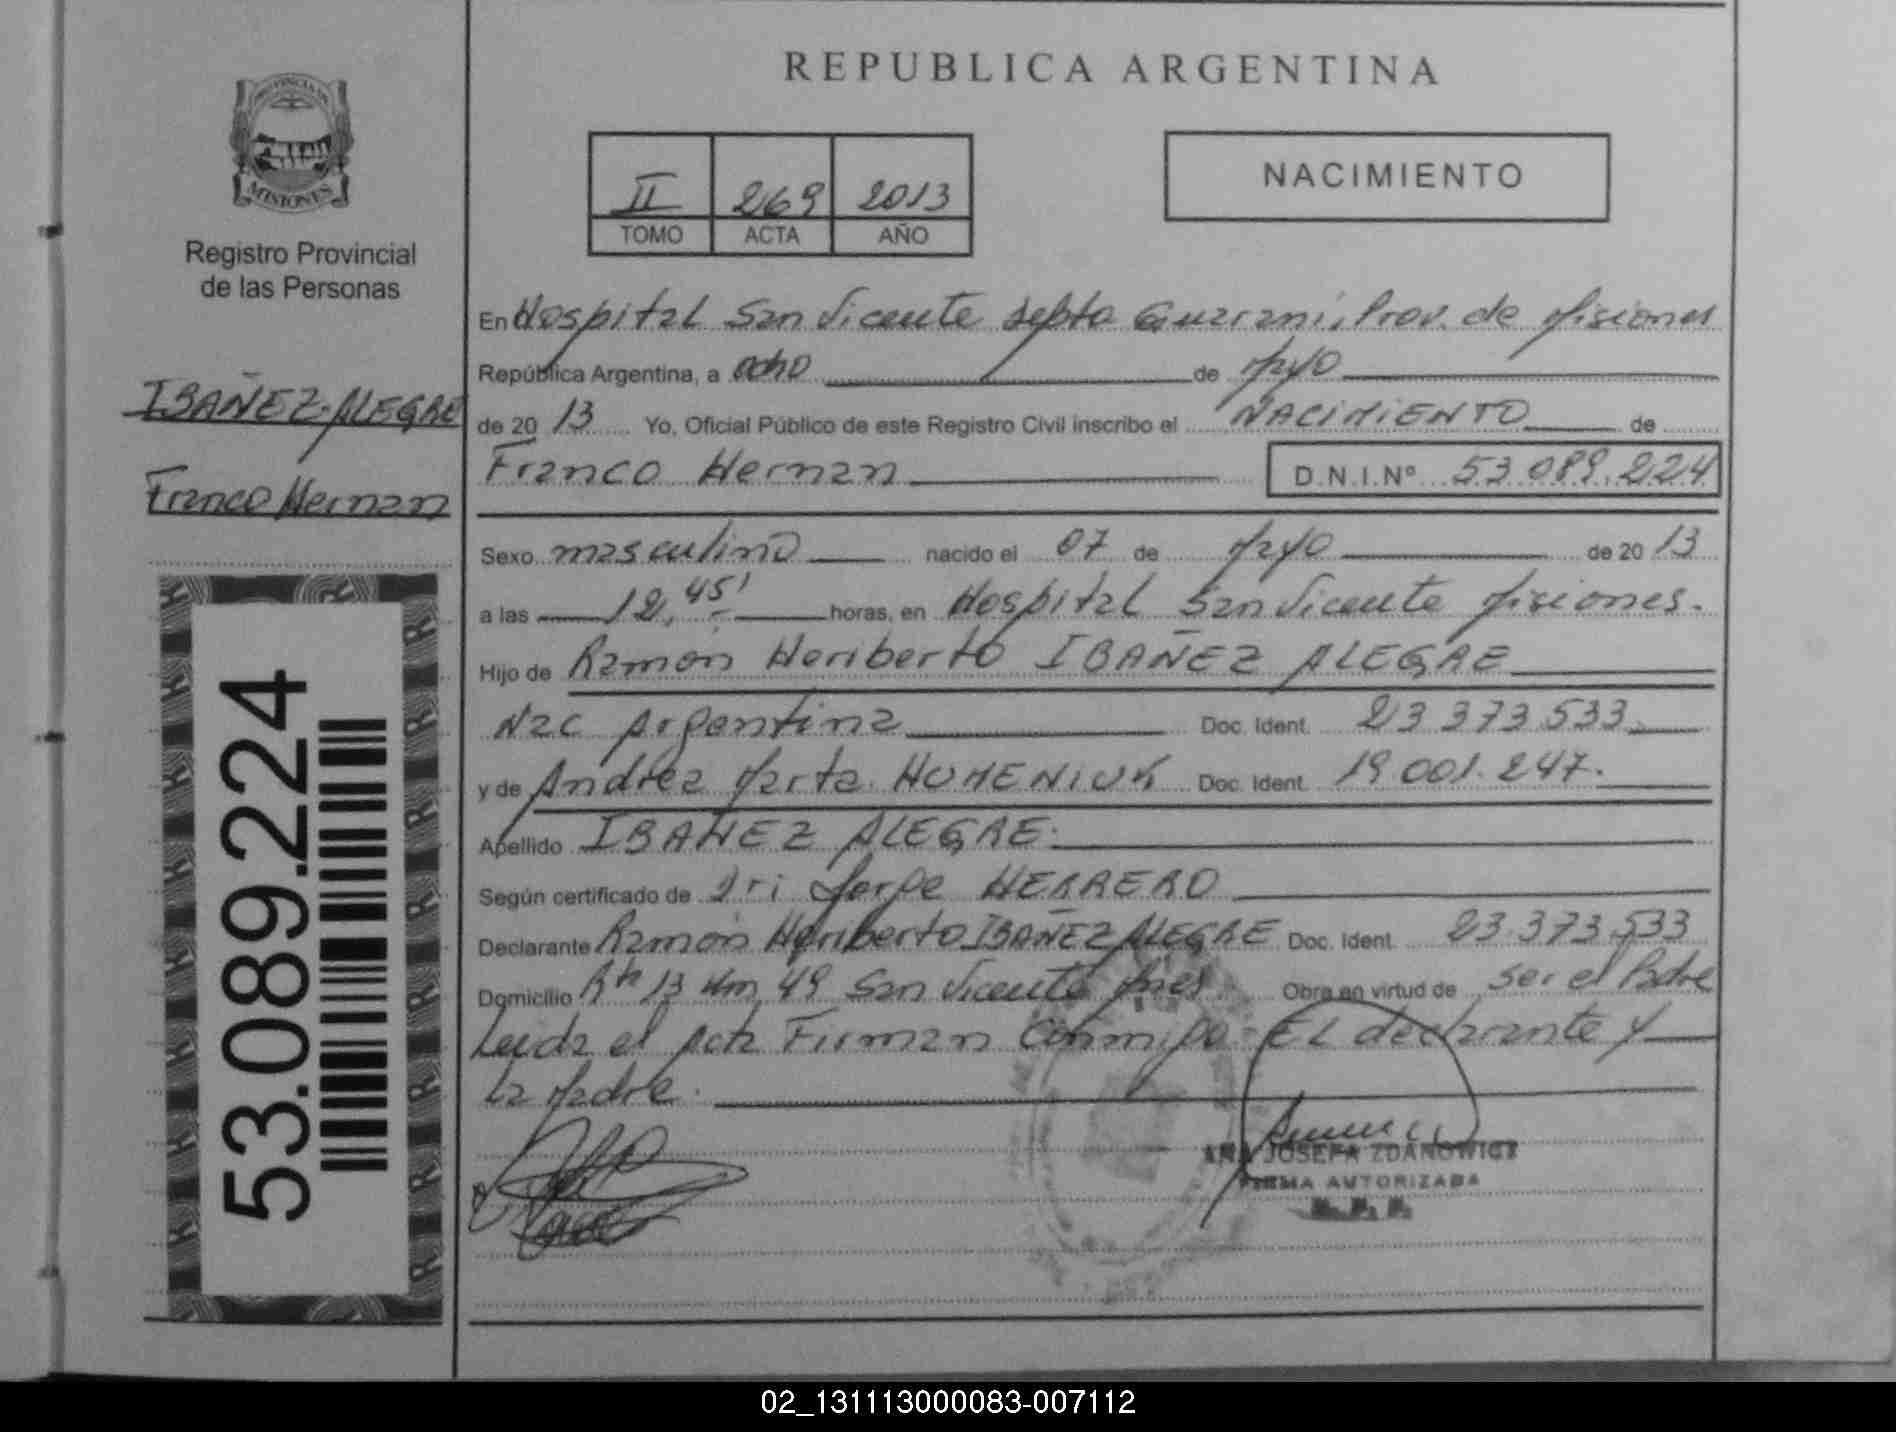 REPUBLICA ARGENTINA
PROVINCIA DE
MISIONES
Registro Provincial
de las Personas
IBAÑEZ ALEGRE
Franco Hernan
53.089.224
II 269 2013
TOMO ACTA AÑO
NACIMIENTO
En Hospital San Vicente Depto Guarani, Prov. de Misiones
República Argentina, a ocho de Mayo
de 20 13 Yo, Oficial Público de este Registro Civil inscribo el NACIMIENTO de
Franco Hernan D.N.I.Nº 53.089.224
Sexo masculino nacido el 07 de Mayo de 20 13
a las 12,45' horas, en Hospital San Vicente Misiones.
Hijo de Ramón Heriberto IBAÑEZ ALEGRE
Nac Argentina Doc. Ident. 23 373 533
y de Andrea Marta HUMENIUK Doc. Ident. 19 001.247.
Apellido IBAÑEZ ALEGRE.
Según certificado de Jorge HERRERO
Declarante Ramón Heriberto IBAÑEZ ALEGRE Doc. Ident. 23.373.533
Domicilio 13 Km 49 San Vicente Mnes Obra en virtud de ser el Padre
Leida el Acta Firman Conmigo: EL declarante y
la Madre.
ANA JOSEFA ZDANOWICZ
FIRMA AUTORIZADA
R. P. P.
02_131113000083-007112